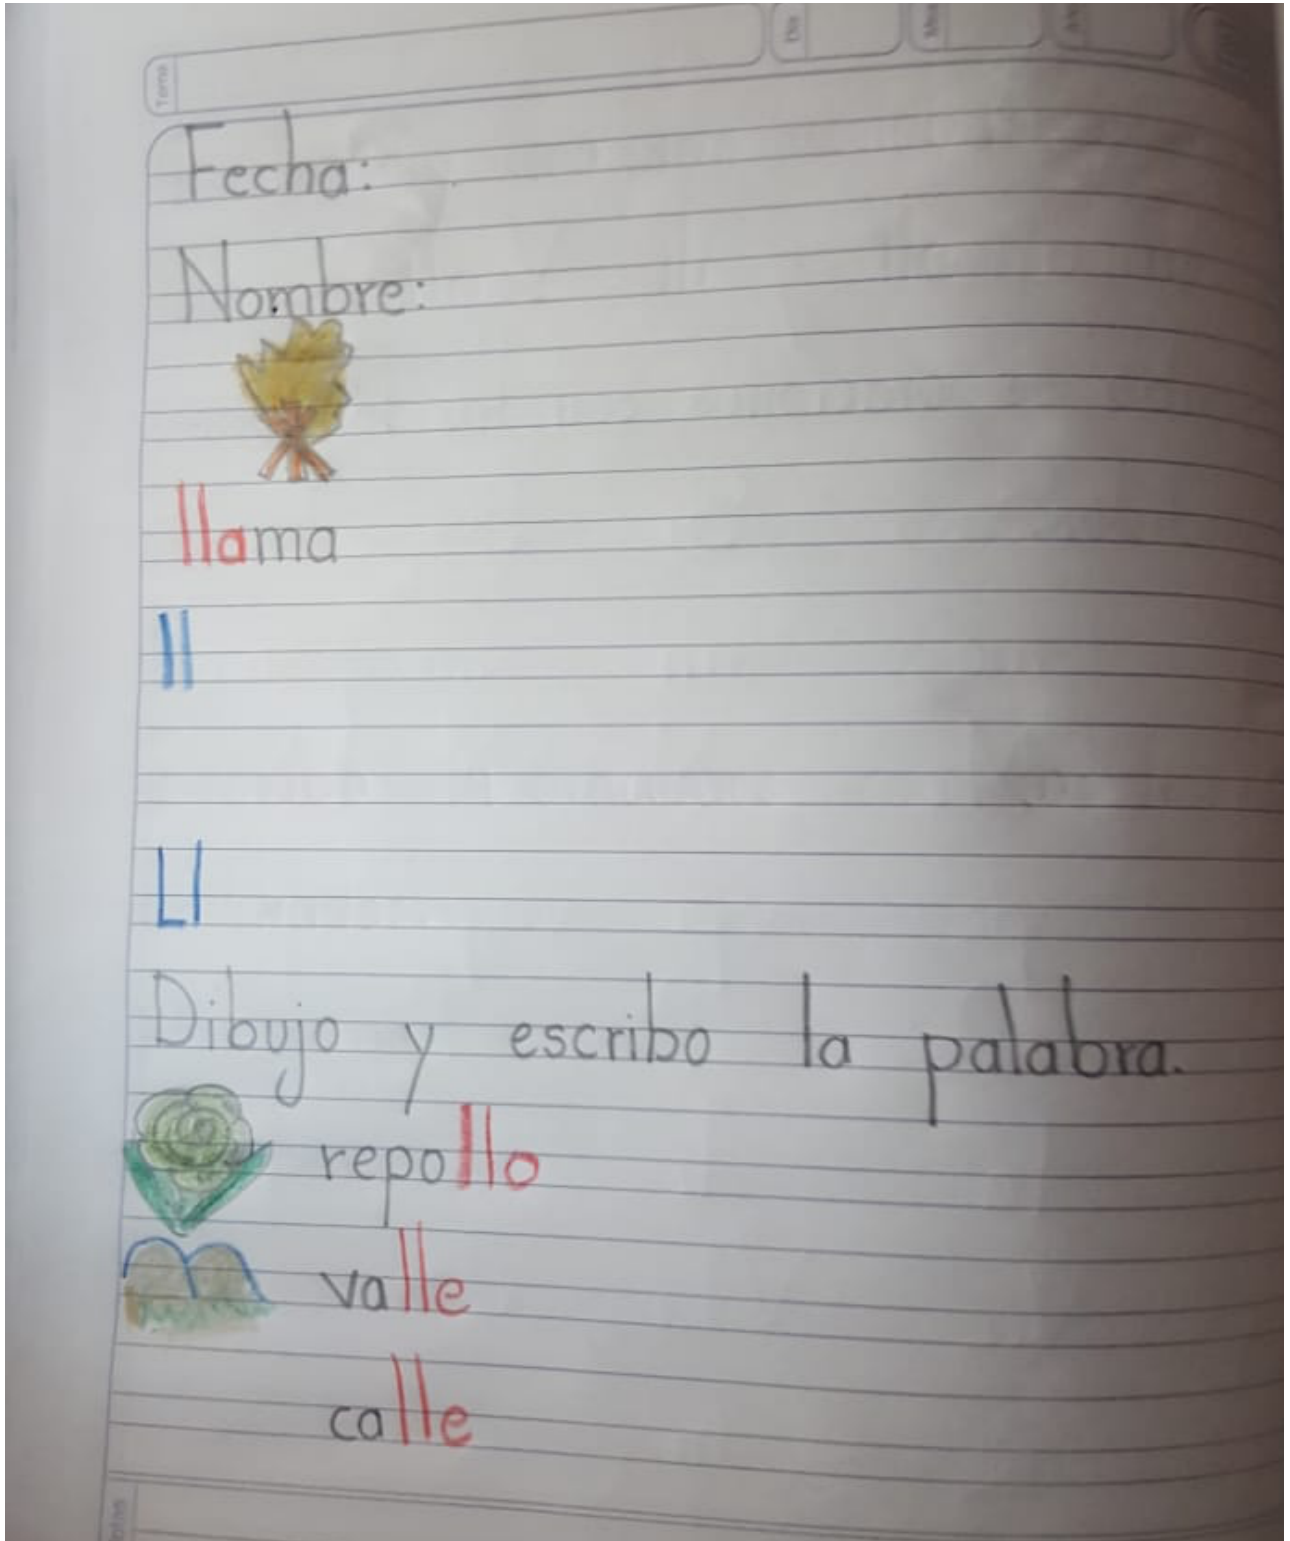 Tema
Día
Fecha:
Nombre:
llama
ll
Ll
Dibujo y escribo la palabra.
repollo
valle
calle